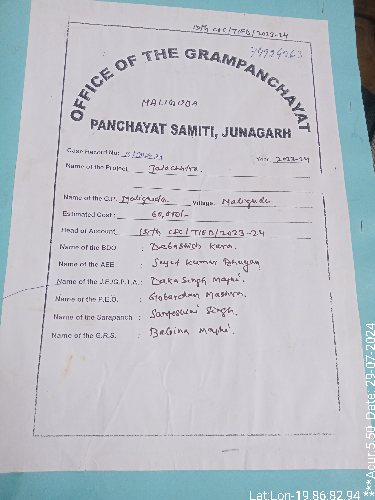 15th CFC/TIED/2023-24
OFFICE OF THE GRAMPANCHAYAT
MALIGUDA
PANCHAYAT SAMITI, JUNAGARH
Case Record No: /2023-24 Year 2023-24
Name of the Project: Jalachhatra
Name of the G.P. Maliguda Village Maliguda
Estimated Cost: 60,000/-
Head of Account 15th CFC/TIED/2023-24
Name of the BDO : Debashish Kara.
Name of the AEE : Sujit Kumar Bhuyan
Name of the J.E./G.P.T.A.: Daka Singh Majhi.
Name of the P.E.O. : Gobardhan
Name of the Sarapanch : Singh.
Name of the G.R.S. : Majhi.
Lat:Lon-19.86:82.94 *** Acur:5.50 Date: 29-07-2024